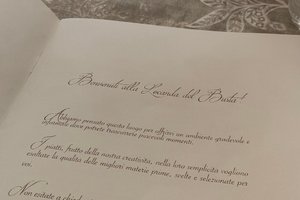 Benvenuti alla Locanda del Busta!
Abbiamo pensato questo luogo per offrirvi un ambiente gradevole e
informale dove potrete trascorrere piacevoli momenti.
I piatti, frutto della nostra creatività, nella loro semplicità vogliono
esaltare la qualità delle migliori materie prime, scelte e selezionate per
voi.
Non esitate a